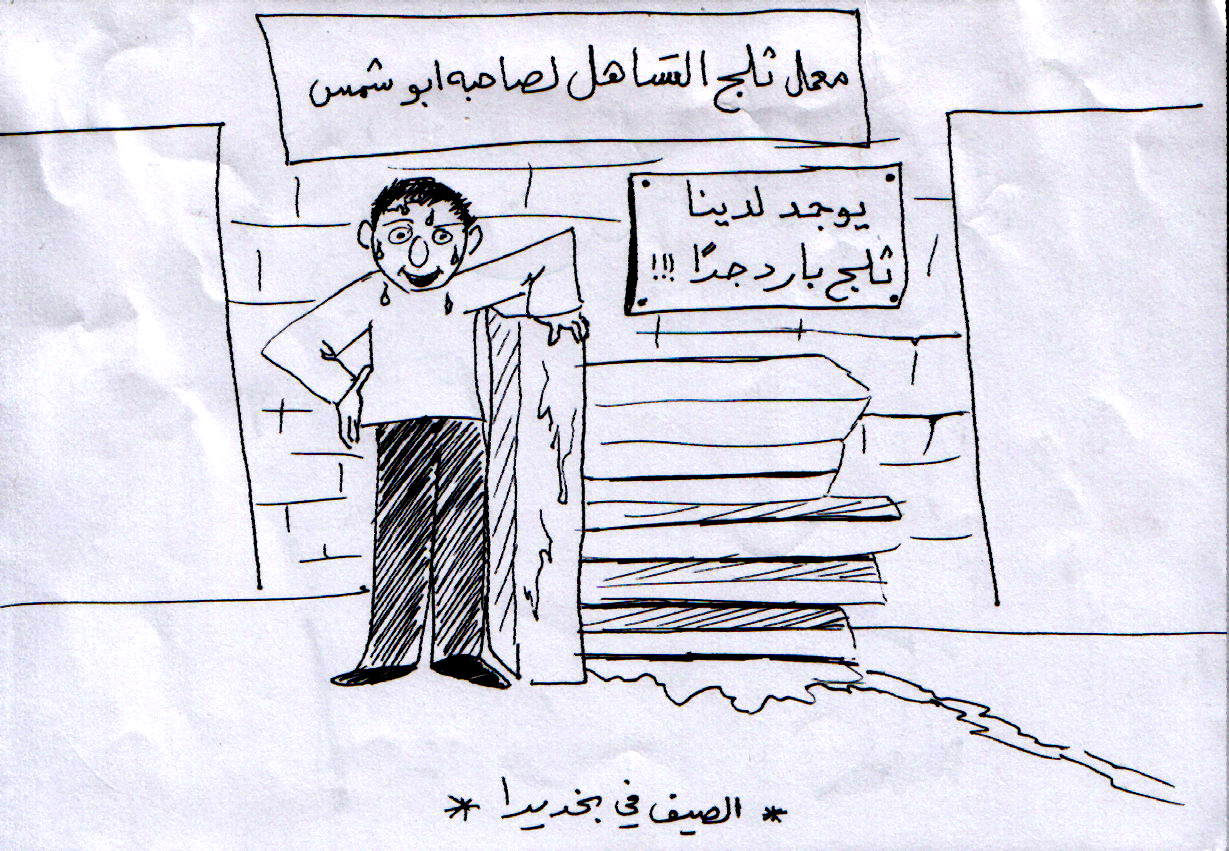 معمل ثلج السَاهل لصاحبه ابو شمس
يوجد لدينا
ثلج بارد جدًا !!!
* الصيف في بخديدا *